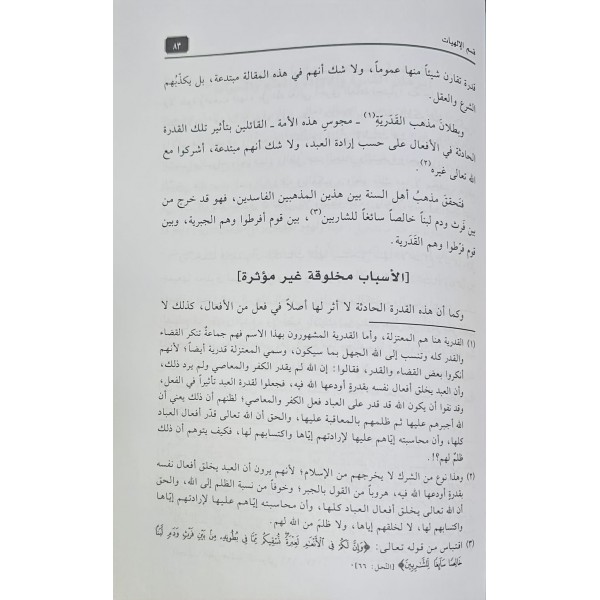 قسم الإلهيات
٨٣
قدرة تقارن شيئاً منها عموماً، ولا شك أنهم في هذه المقالة مبتدعة، بل يكذّبهم
الشرع والعقل.
وبطلانَ مذهب القَدَريّةِ(١) ـ مجوسِ هذه الأمة ـ القائلين بتأثير تلك القدرة
الحادثة في الأفعال على حسب إرادة العبد، ولا شك أنهم مبتدعة، أشركوا مع
الله تعالى غيره(٢).
فتَحقَّقَ مذهبُ أهل السنة بين هذين المذهبين الفاسدين، فهو قد خرج من
بين فَرثٍ ودم لبناً خالصاً سائغاً للشاربين(٣)، بين قوم أفرطوا وهم الجبرية، وبين
قوم فرّطوا وهم القَدَرية.
[الأسباب مخلوقة غير مؤثرة]
وكما أن هذه القدرة الحادثة لا أثر لها أصلاً في فعل من الأفعال، كذلك لا
(١) القدرية هنا هم المعتزلة، وأما القدرية المشهورون بهذا الاسم فهم جماعةٌ تنكر القضاء
والقدر كله وتنسب إلى الله الجهل بما سيكون، وسمي المعتزلة قدرية أيضاً؛ لأنهم
أنكروا بعض القضاء والقدر، فقالوا: إن الله لم يقدر الكفر والمعاصي ولم يرد ذلك،
وأن العبد يخلق أفعال نفسه بقدرةٍ أودعها الله فيه، فجعلوا لقدرة العبد تأثيراً في الفعل،
وقد نفوا أن يكون الله قد قدر على العباد فعل الكفر والمعاصي؛ لظنهم أن ذلك يعني أن
الله أجبرهم عليها ثم ظلمهم بالمعاقبة عليها، والحق أن الله تعالى قدّر أفعال العباد
كلها، وأن محاسبته إياهم عليها لإرادتهم إيّاها واكتسابهم لها، فكيف يتوهم أن ذلك
ظلمٌ لهم؟!.
(٢) وهذا نوع من الشرك لا يخرجهم من الإسلام؛ لأنهم يرون أن العبد يخلق أفعال نفسه
بقدرةٍ أودعها الله فيه، هروباً من القول بالجبر؛ وخوفاً من نسبة الظلم إلى الله، والحق
أن الله تعالى يخلق أفعال العباد كلها، وأن محاسبته إياهم عليها لإرادتهم إيّاها
واكتسابهم لها، لا لخلقهم إياها، ولا ظلمَ من الله لهم.
(٣) اقتباس من قوله تعالى: ﴿وَإِنَّ لَكُمْ فِي الْأَنْعَامِ لَعِبْرَةً نُّسْقِيكُم مِّمَّا فِي بُطُونِهِ مِن بَيْنِ فَرْثٍ وَدَمٍ لَّبَنًا
خَالِصًا سَائِغًا لِّلشَّارِبِينَ﴾ [النحل: ٦٦].